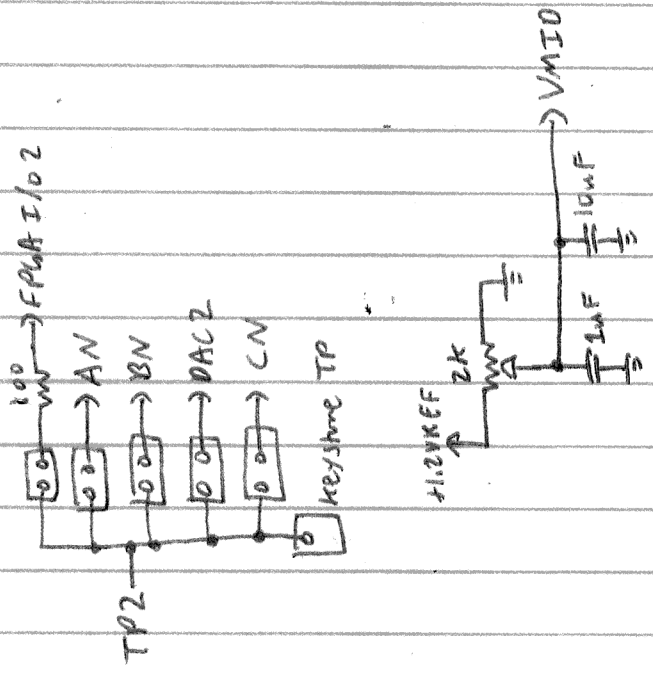 TP2
100
FPGA I/O 2
AN
BN
DAC2
CN
Keystone TP
+1.2VREF
2K
1uF
10uF
VMID